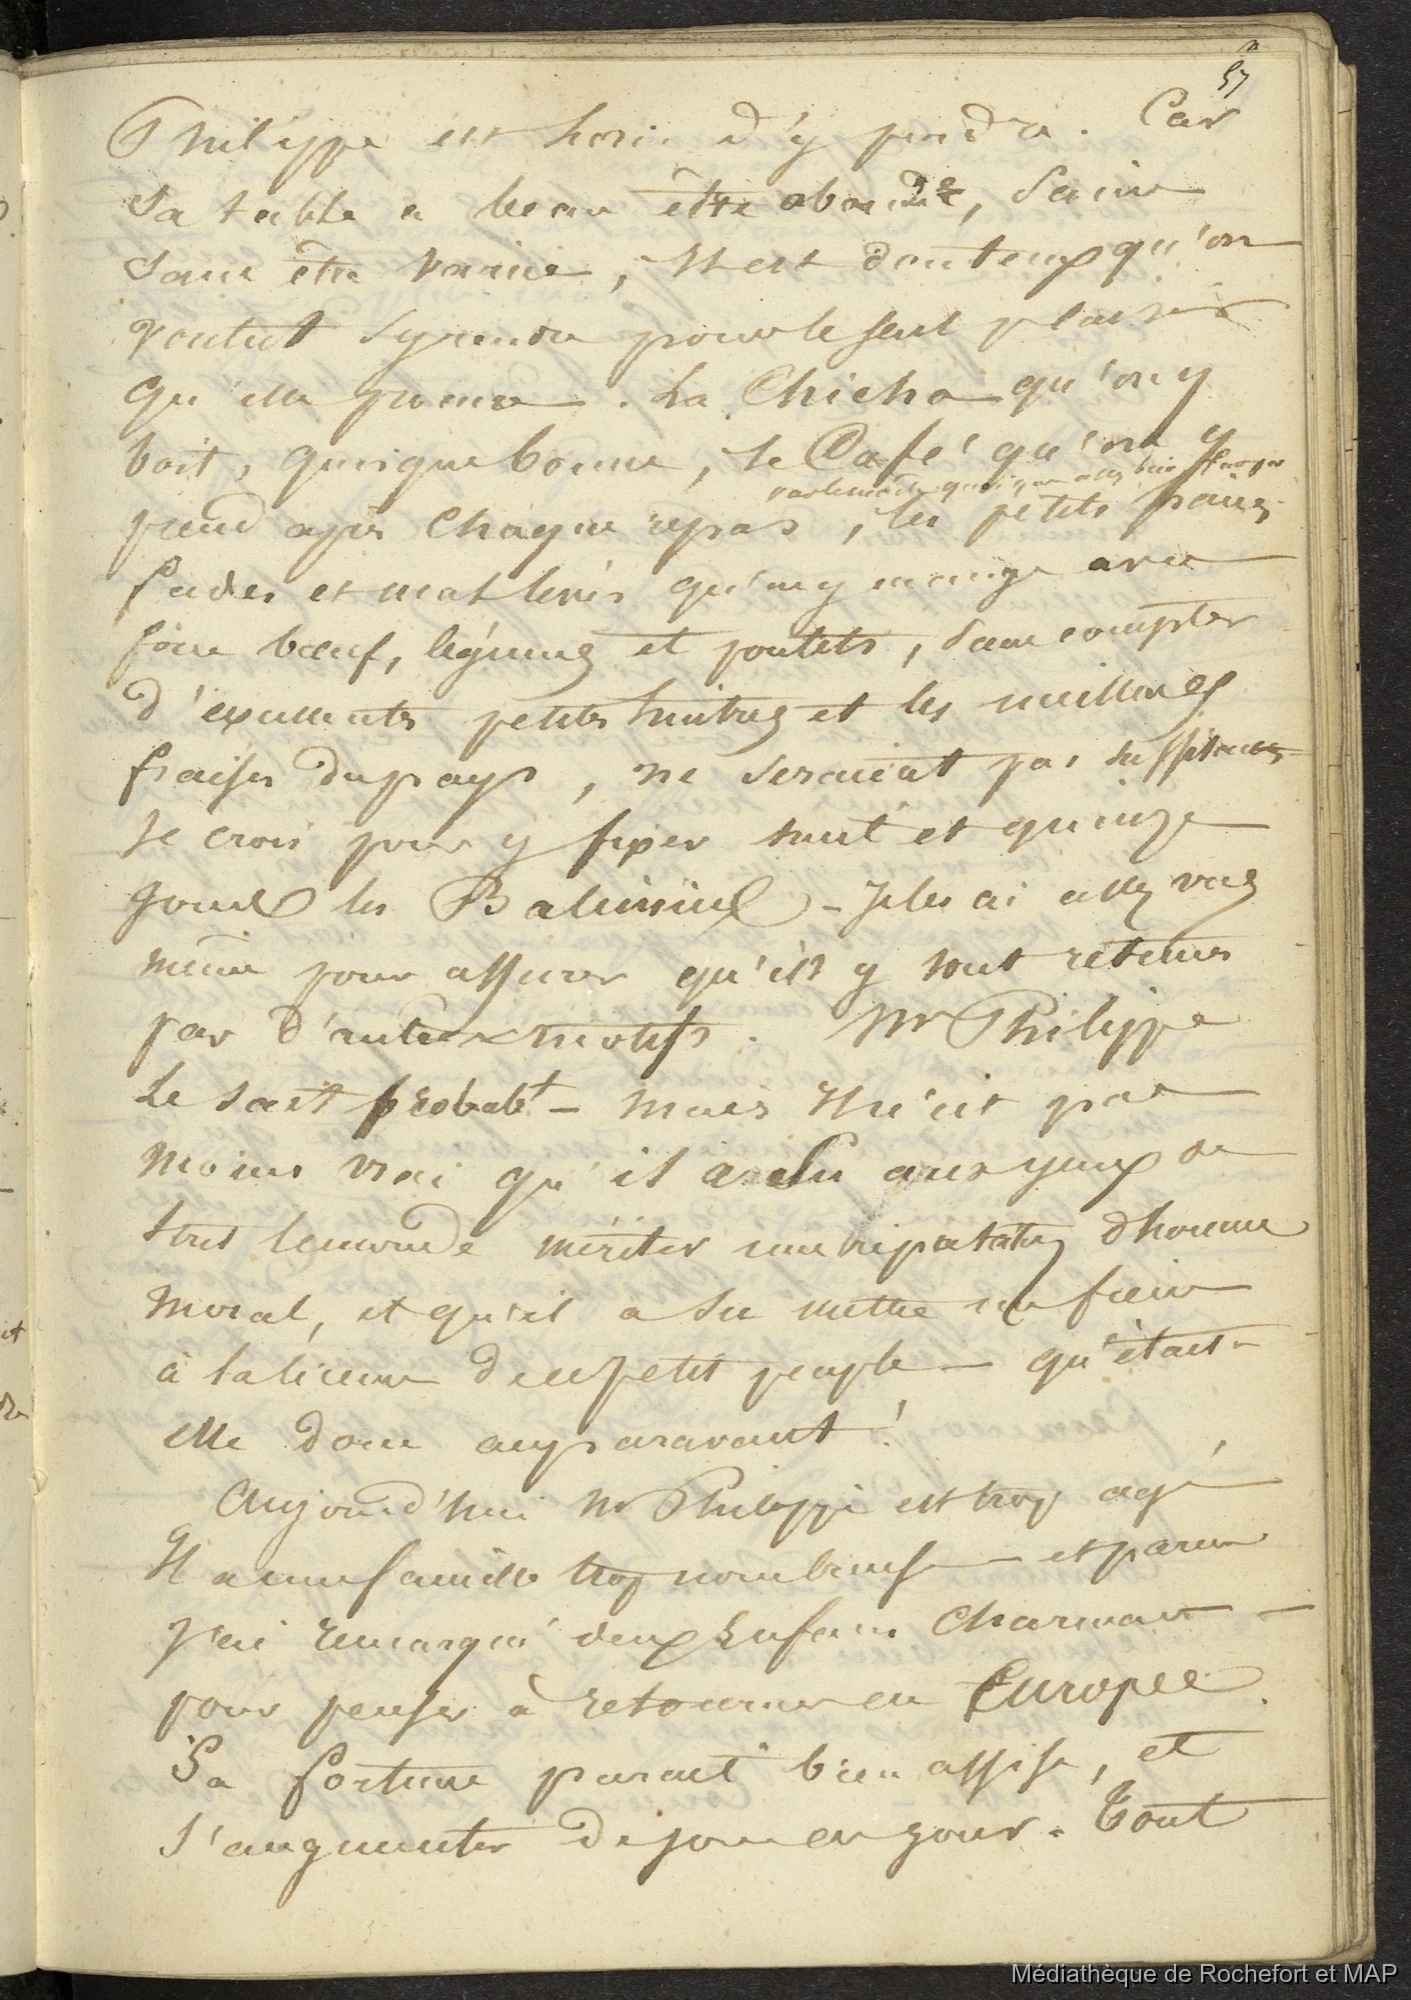 57
Philippe est loin d'y perdre. Car
sa table a beau être abond^te, saine
sans être variée, Il est douteux qu'on
voulut s'y rendre pour le seul plaisir
qu'elle procure. La Chicha qu'on y
boit, quoique bonne, le Café qu'on y
prend après chaque repas, les petits pains
fades et mal levés qu'on y mange avec
force bœuf, légumes et poulets, sans compter
d'excellentes petites huitres et les meilleures
fraises du pays, ne seraient pas suffisantes
je crois pour y fixer huit et quinze
jours les Baleiniers - Je les ai assez vus
même pour assurer qu'ils y sont retenus
par d'autres motifs. Mr Philippe
le sait probabt - mais Il n'est pas
moins vrai qu'il a su aux yeux de
tout le monde mériter une réputation d'homme
moral, et qu'il a su mettre un frein
à la licence de ce petit peuple - qu'était-
elle donc auparavant!
Aujourd'hui Mr Philippi est trop agé
Il a une famille trop nombreuse - et parmi
j'ai remarqué deux Enfans charmans -
pour penser à retourner en Europe.
Sa fortune parait bien assise, et
s'augmenter de jour en jour. Tout
Médiathèque de Rochefort et MAP